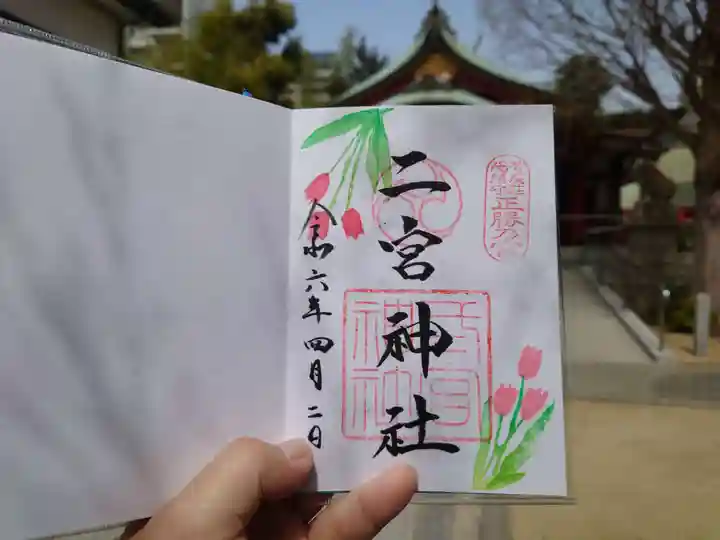 二宮神社
令和六年四月二日
二宮神社